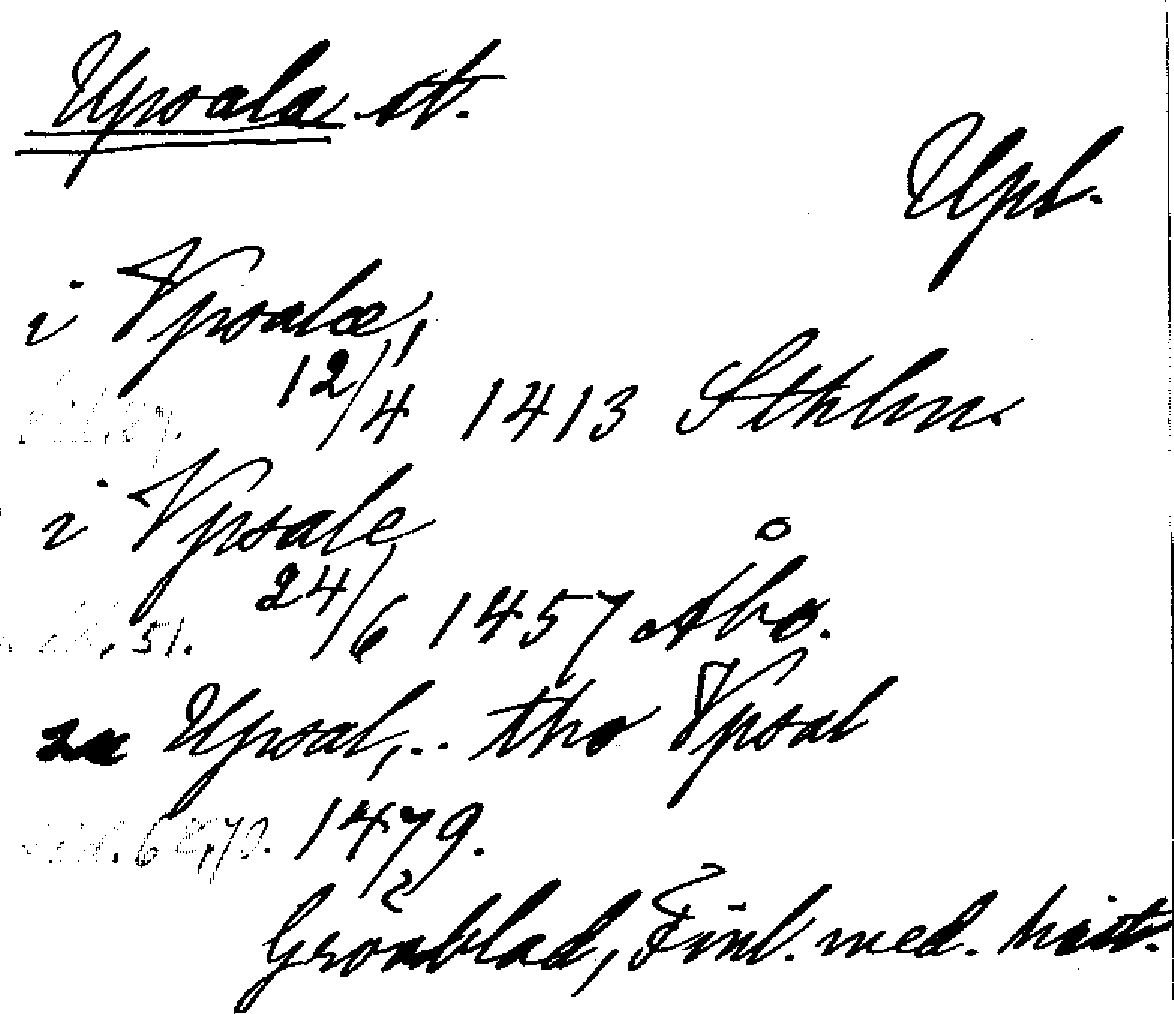 Upsala st.
Upl.
i Vpsalæ,
12/4 1413 Sthlm.
i Vpsale
24/6 1457 Åbo.
51.
Upsal,.. tho Vpsal
1479.
Grönblad, Finl. med. hist.